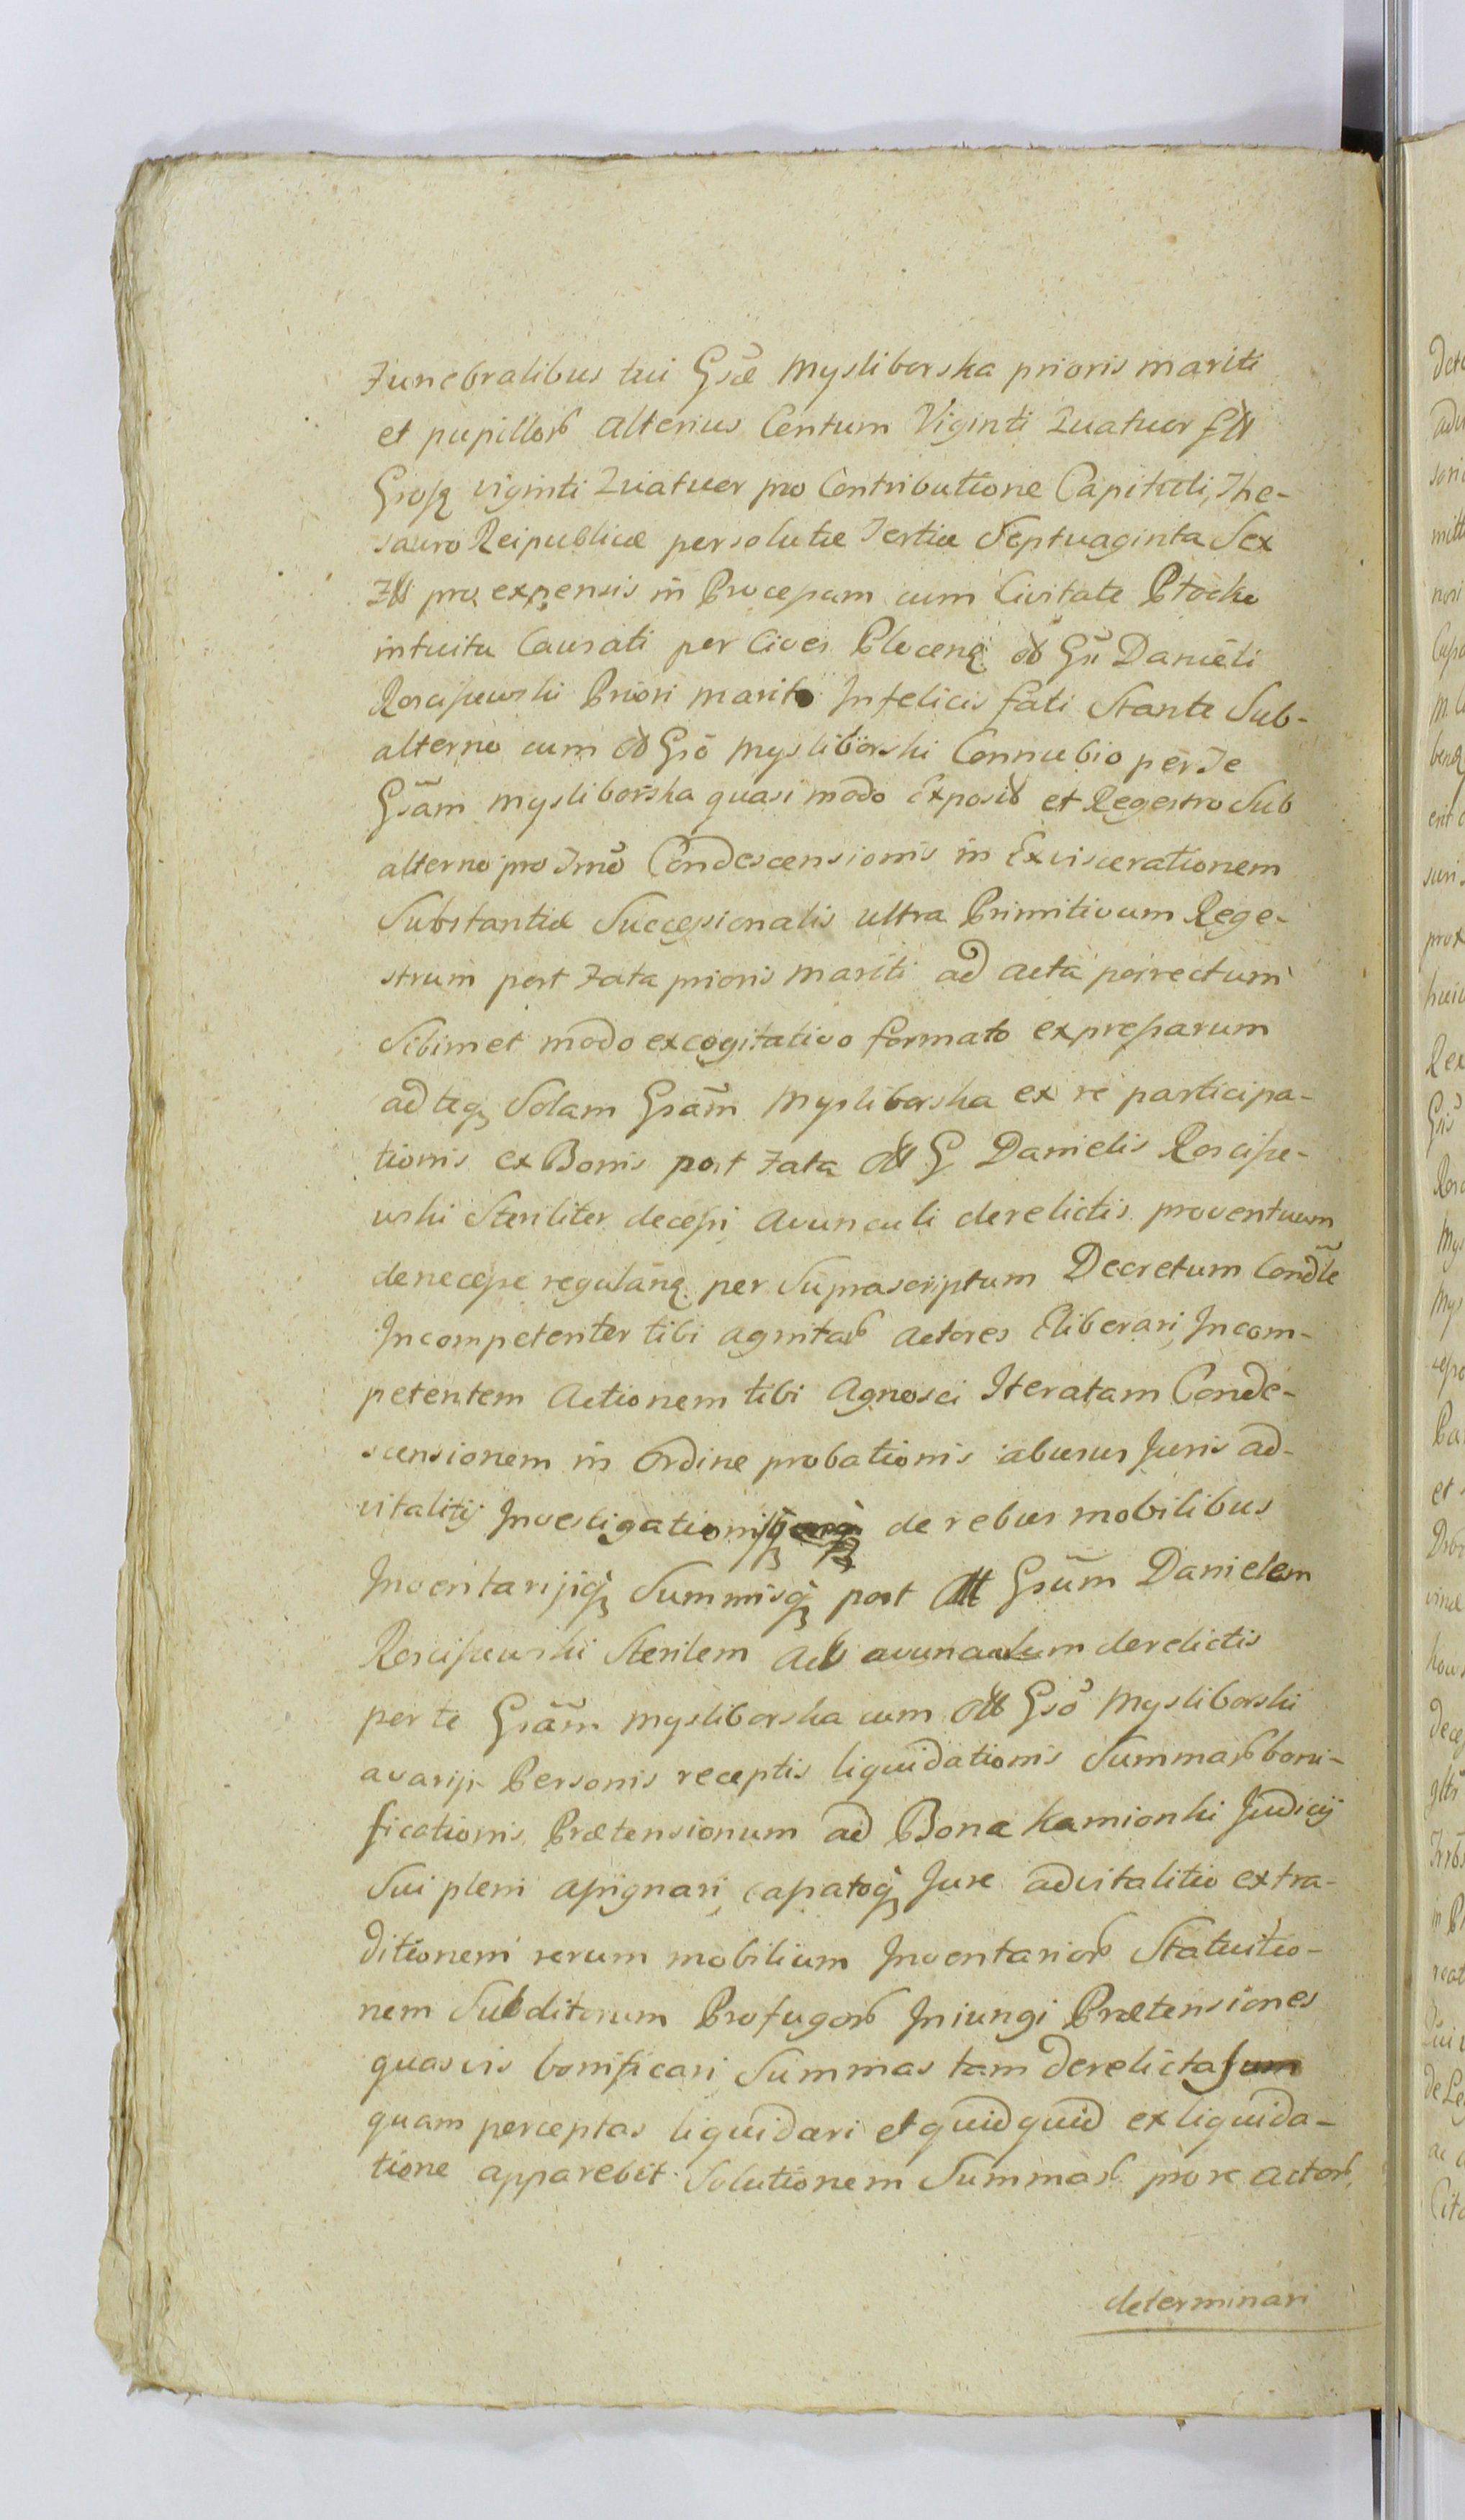 Funebralibus tui Gsæ Mysliborska prioris mariti
et pupillorb alterius Centum Viginti Quatuor fll
Grosz viginti Quatuor pro Contributione Capituli, The-
sauro Reipublicæ persolutæ Tertiæ Septuaginta Sex
Zll pro expensis in Processum cum Civitate Plocka
intuitu Causati per Cives Plocenꝫ ol Gn Danieli
Roscissewski Priori marito Infelicis fati Stante Sub-
alterno cum ol Gso Mysliborski Connubio per Te
Gsam Mysliborska quasi modo Exposit et Regestro Sub
alterno pro Imo Condescensionis in Eviscerationem
Substantiæ Successionalis ultra Primitivum Rege-
strum post Fata prioris Mariti ad acta porrectum
Sibimet modo excogitativo formato expressarum
ad teqꝫ Solam Gsam Mysliborska ex re participa-
tionis ex Bonis post Fata oll G Danielis Roscisse-
wski Steriliter decessi Avunculi derelictis proventuum
denecesse regulanꝫ per Suprascriptum Decretum Condle
Incompetenter tibi agnitarb Actores Eliberari, Incom-
petentem Actionem tibi Agnosci Iteratam Conde-
scensionem in Ordine probationis abusus Juris ad-
vitalitij Investigationisqꝫ de rebus mobilibus
Inventarijsqꝫ Summisqꝫ post oll Gsum Danielem
Roscissewski Sterilem Act avunculum derelictis
per te Gsam Mysliborska cum oll Gso Mysliborski
avarijs Personis receptis liquidationis Summarb boni-
ficationis Prætensionum ad Bona Kamionki Judicij
Sui pleni assignari, cassatoqꝫ Jure advitalitio extra-
ditionem rerum mobilium Inventariorb Statuitio-
nem Subditorum Profugorb Iniungi Prætensiones
quasvis bonificari Summas tam derelictas
quam perceptas liquidari et quidquid ex liquida-
tione apparebit Solutionem Summarb pro re actorb
determinari